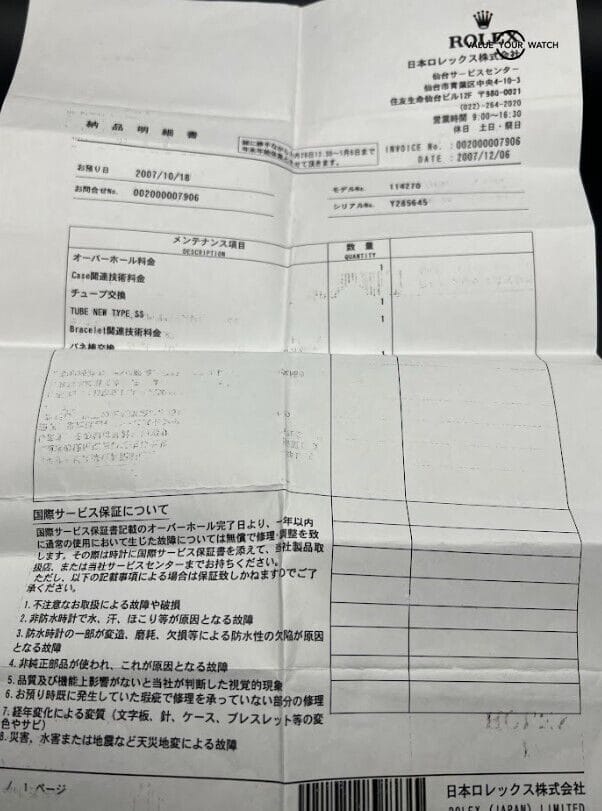 ROLEX
VALUE YOUR WATCH
日本ロレックス株式会社
仙台サービスセンター
仙台市青葉区中央4-10-3
住友生命仙台ビル12F 〒980-0021
(022)-264-2020
営業時間 9:00~16:30
休日 土日・祭日
納品明細書
INVOICE No. : 002000007906
DATE : 2007/12/06
お預り日 2007/10/18
お問合せNo. 002000007906
モデルNo. 114270
シリアルNo. Y285645
メンテナンス項目 数量
DESCRIPTION QUANTITY
オーバーホール料金 1
Case関連技術料金
チューブ交換 1
TUBE NEW TYPE SS 1
Bracelet関連技術料金
バネ棒交換 1
国際サービス保証について
国際サービス保証書記載のオーバーホール完了日より、一年以内
に通常の使用において生じた故障については無償で修理・調整を致
します。その際は時計に国際サービス保証書を添えて、当社製品取
扱店、または当社サービスセンターまでお持ちください。
ただし、以下の記載事項による場合は保証致しかねますのでご了
承ください。
1.不注意なお取扱による故障や破損
2.非防水時計で水、汗、ほこり等が原因となる故障
3.防水時計の一部が変造、磨耗、欠損等による防水性の欠陥が原因
となる故障
4.非純正部品が使われ、これが原因となる故障
5.品質及び機能上影響がないと当社が判断した視覚的現象
6.お預り時既に発生していた瑕疵で修理を承っていない部分の修理
7.経年変化による変質(文字板、針、ケース、ブレスレット等の変
色やサビ)
8.災害、水害または地震など天災地変による故障
1 ページ
日本ロレックス株式会社
ROLEX (JAPAN) LIMITED